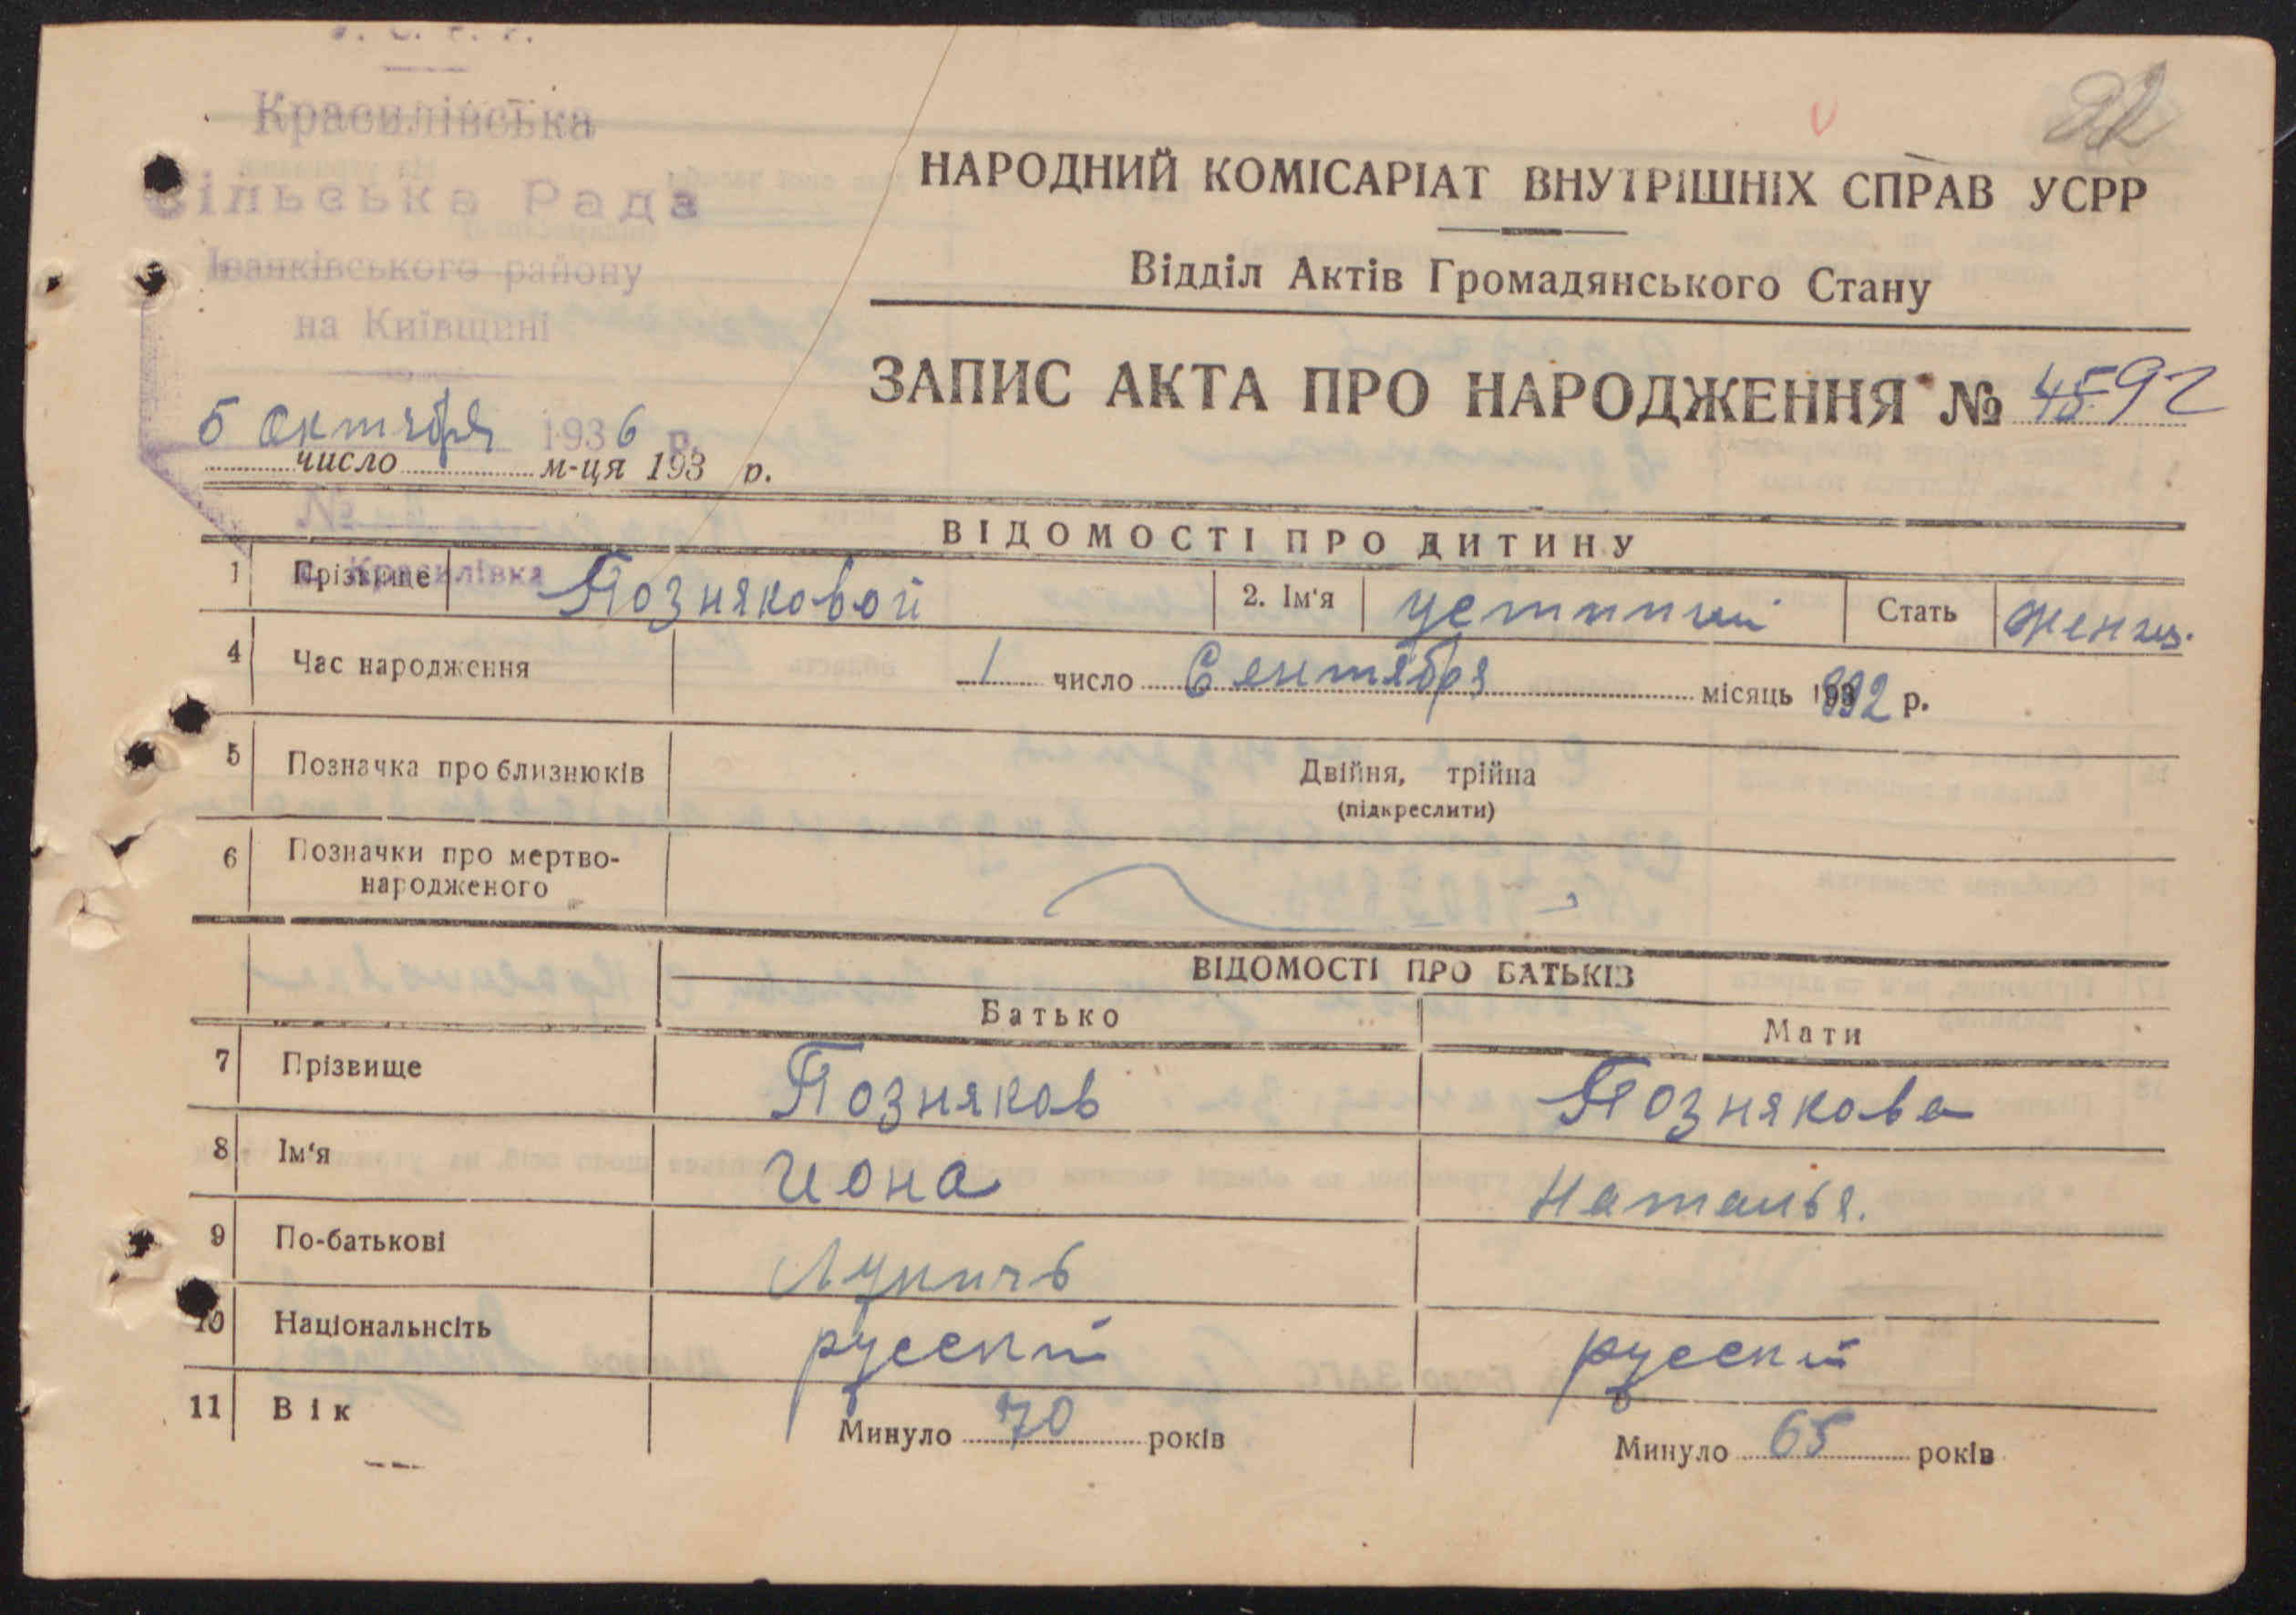 У. С. Р. Р.
22
Красилівська
Сільська Рада
Іванківського району
на Київщині
НАРОДНИЙ КОМІСАРІАТ ВНУТРІШНІХ СПРАВ УСРР
Відділ Актів Громадянського Стану
ЗАПИС АКТА ПРО НАРОДЖЕННЯ № 4592
5 октября 1936 р.
число м-ця 193 р.
№
с. Красилівка
ВІДОМОСТІ ПРО ДИТИНУ
1 Прізвище Позняковой 2. Ім'я Устинии Стать женщ.
4 Час народження 1 число Сентября місяць 1892 р.
5 Позначка про близнюків Двійня, трійна
(підкреслити)
6 Позначки про мертво-
народженого
ВІДОМОСТІ ПРО БАТЬКІВ
Батько Мати
7 Прізвище Позняков Познякова
8 Ім'я Иона Наталья.
9 По-батькові
10 Національнсіть русский русский
11 Вік Минуло 70 років Минуло 65 років